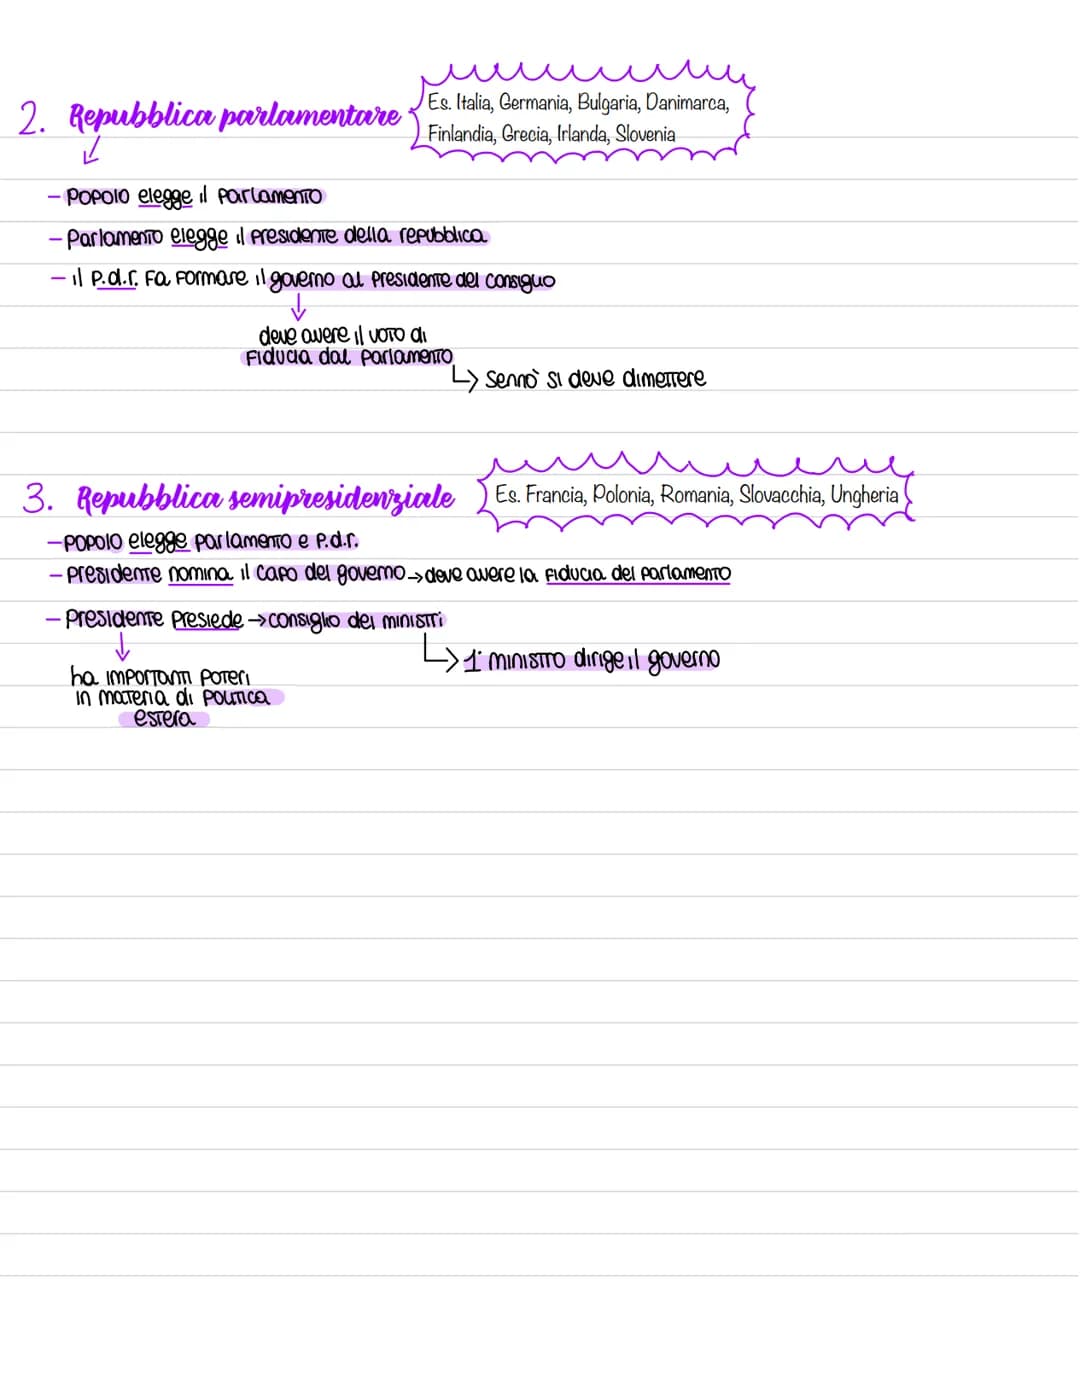 2. Repubblica parlamentare
Es. Italia, Germania, Bulgaria, Danimarca,
Finlandia, Grecia, Irlanda, Slovenia
- Popolo elegge il parlamento
- Parlamento elegge il presidente della repubblica
- il P.d.r. fa formare il governo al presidente del consiglio
deve avere il voto di
fiducia dal parlamento
↳ sennò si deve dimettere
3. Repubblica semipresidenziale
Es. Francia, Polonia, Romania, Slovacchia, Ungheria
- popolo elegge parlamento e P.d.r.
- presidente nomina il capo del governo → deve avere la fiducia del parlamento
- Presidente presiede → consiglio dei ministri
↳ 1° ministro dirige il governo
ha importanti poteri
in materia di politica
estera